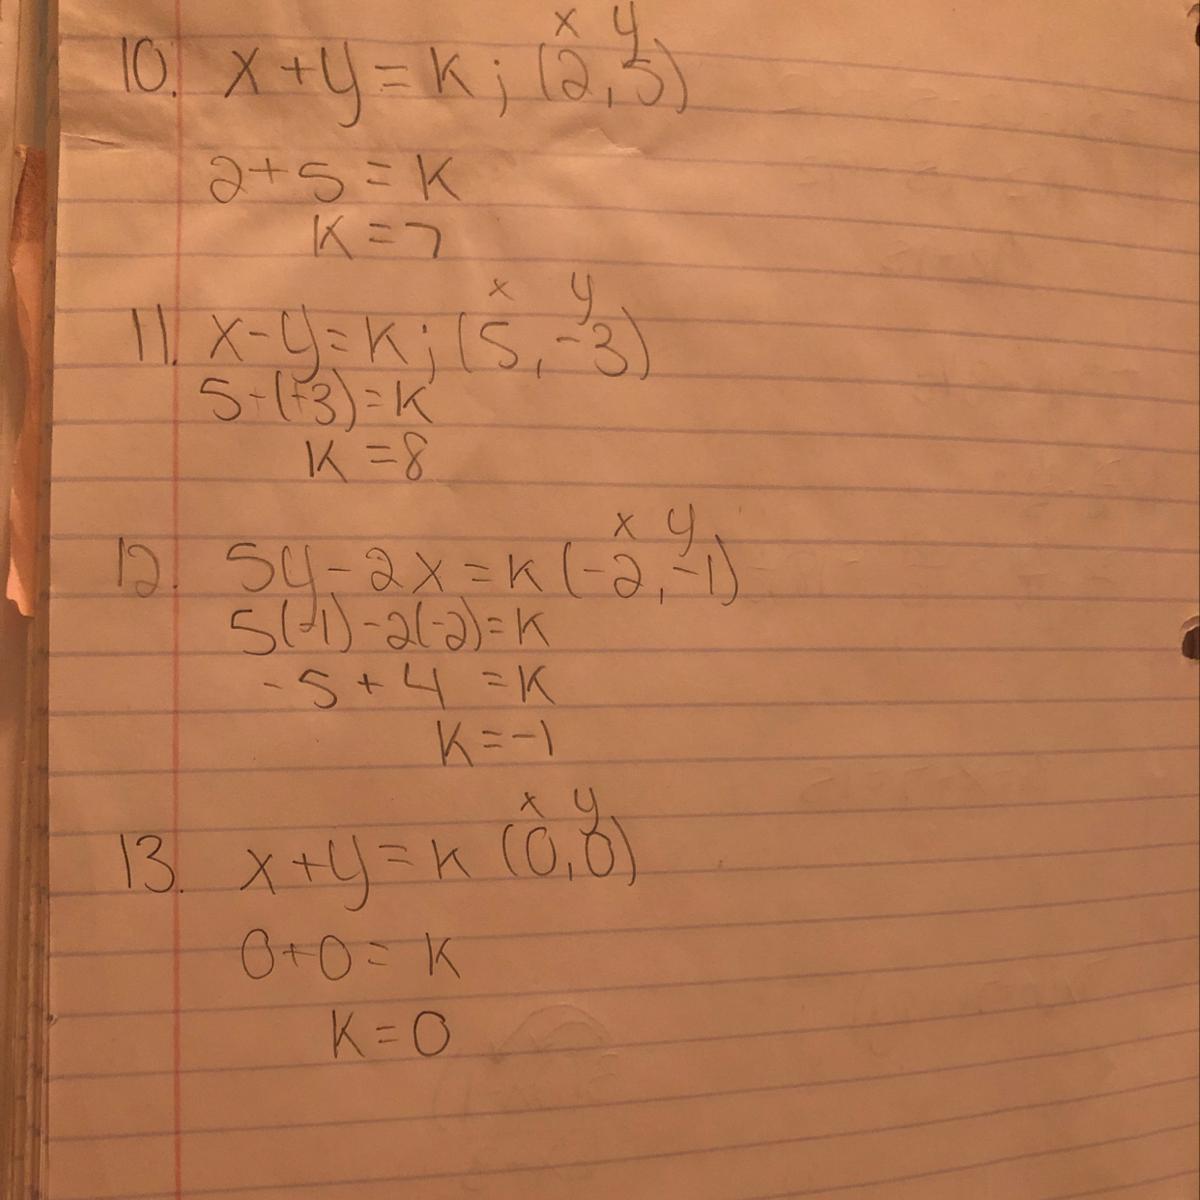 x y
10. x+y=K; (2,5)
2+5=K
K=7
x y
11. x-y=K; (5,-3)
5-(-3)=K
K=8
x y
12. 5y-2x=K (-2,-1)
5(-1)-2(-2)=K
-5+4=K
K=-1
x y
13. x+y=K (0,0)
0+0=K
K=0